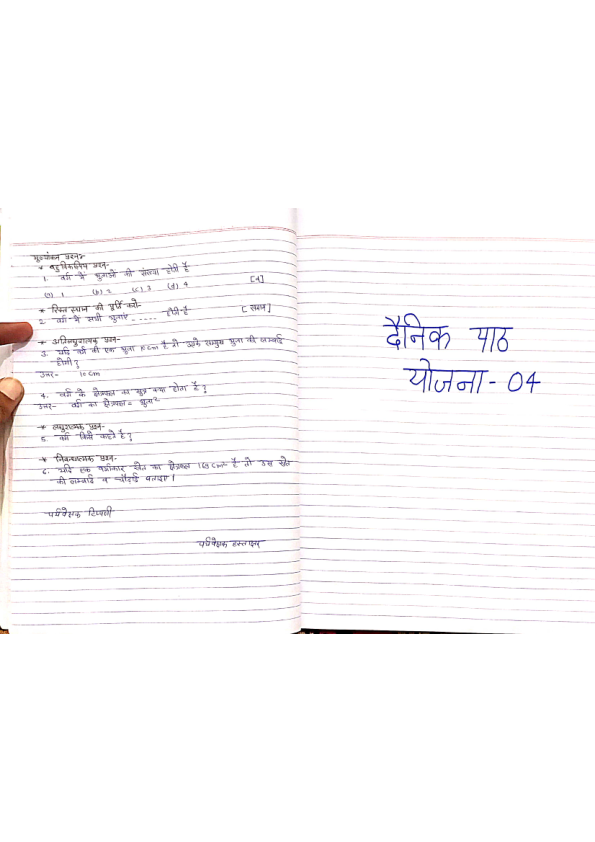 मूल्यांकन प्रश्न-
* बहुविकल्पीय प्रश्न-
1. वर्ग में भुजाओं की संख्या होती है
(a) 1 (b) 2 (c) 3 (d) 4 [4]
* रिक्त स्थान की पूर्ति करो-
2. वर्ग में सभी भुजाएं ...... होती है [समान]
* अतिलघुरात्मक प्रश्न-
3. यदि वर्ग की एक भुजा 10 cm है तो उसके सम्मुख भुजा की लम्बाई
होगी?
उत्तर- 10 cm
4. वर्ग के क्षेत्रफल का सूत्र क्या होता है?
उत्तर- वर्ग का क्षेत्रफल = भुजा²
* लघुरात्मक प्रश्न-
5. वर्ग किसे कहते है?
* निबन्धात्मक प्रश्न-
6. यदि एक वर्गाकार खेत का क्षेत्रफल cm² है तो उस खेत
की लम्बाई व चौड़ाई बताइए।
पर्यवेक्षक टिप्पणी
पर्यवेक्षक हस्ताक्षर
दैनिक पाठ
योजना - 04